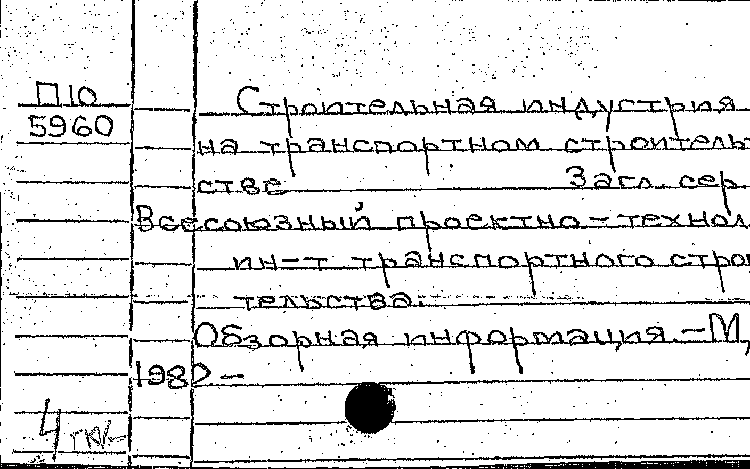 П10
5960
Строительная индустрия
на транспортном строитель
стве Загл. сер
Всесоюзный проектно-технол
ин-т транспортного строи
тельства.
Обзорная информация.-М,
1980-
4